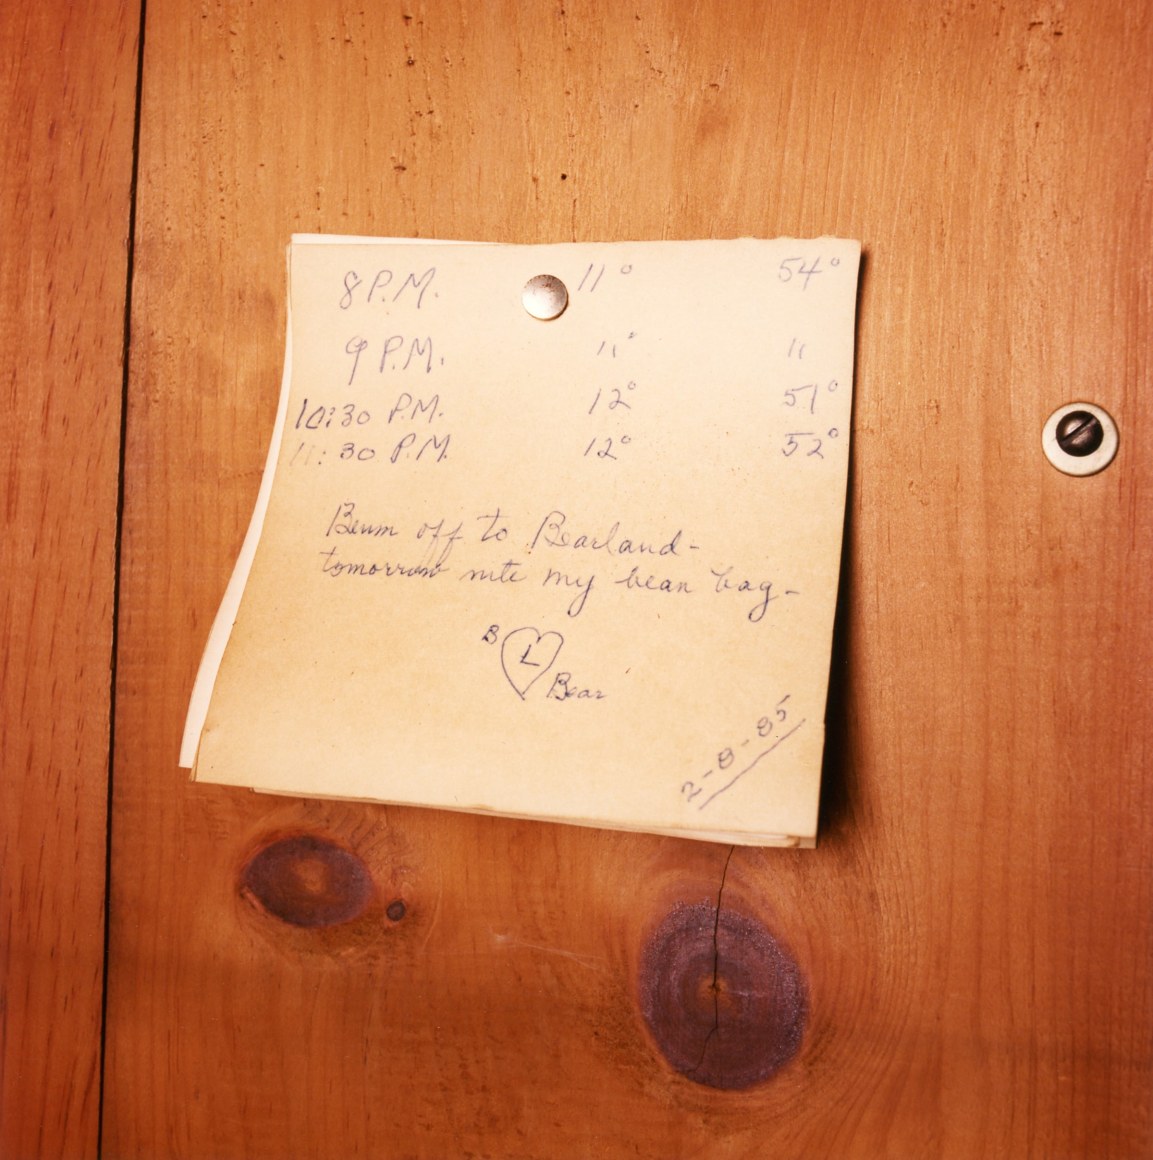 8 P.M. 11° 54°
9 P.M. 11° 11
10:30 P.M. 12° 51°
11:30 P.M. 12° 52°
off to Bearland-
tomorrow nite my bean bag-
B L Bear
2-8-85